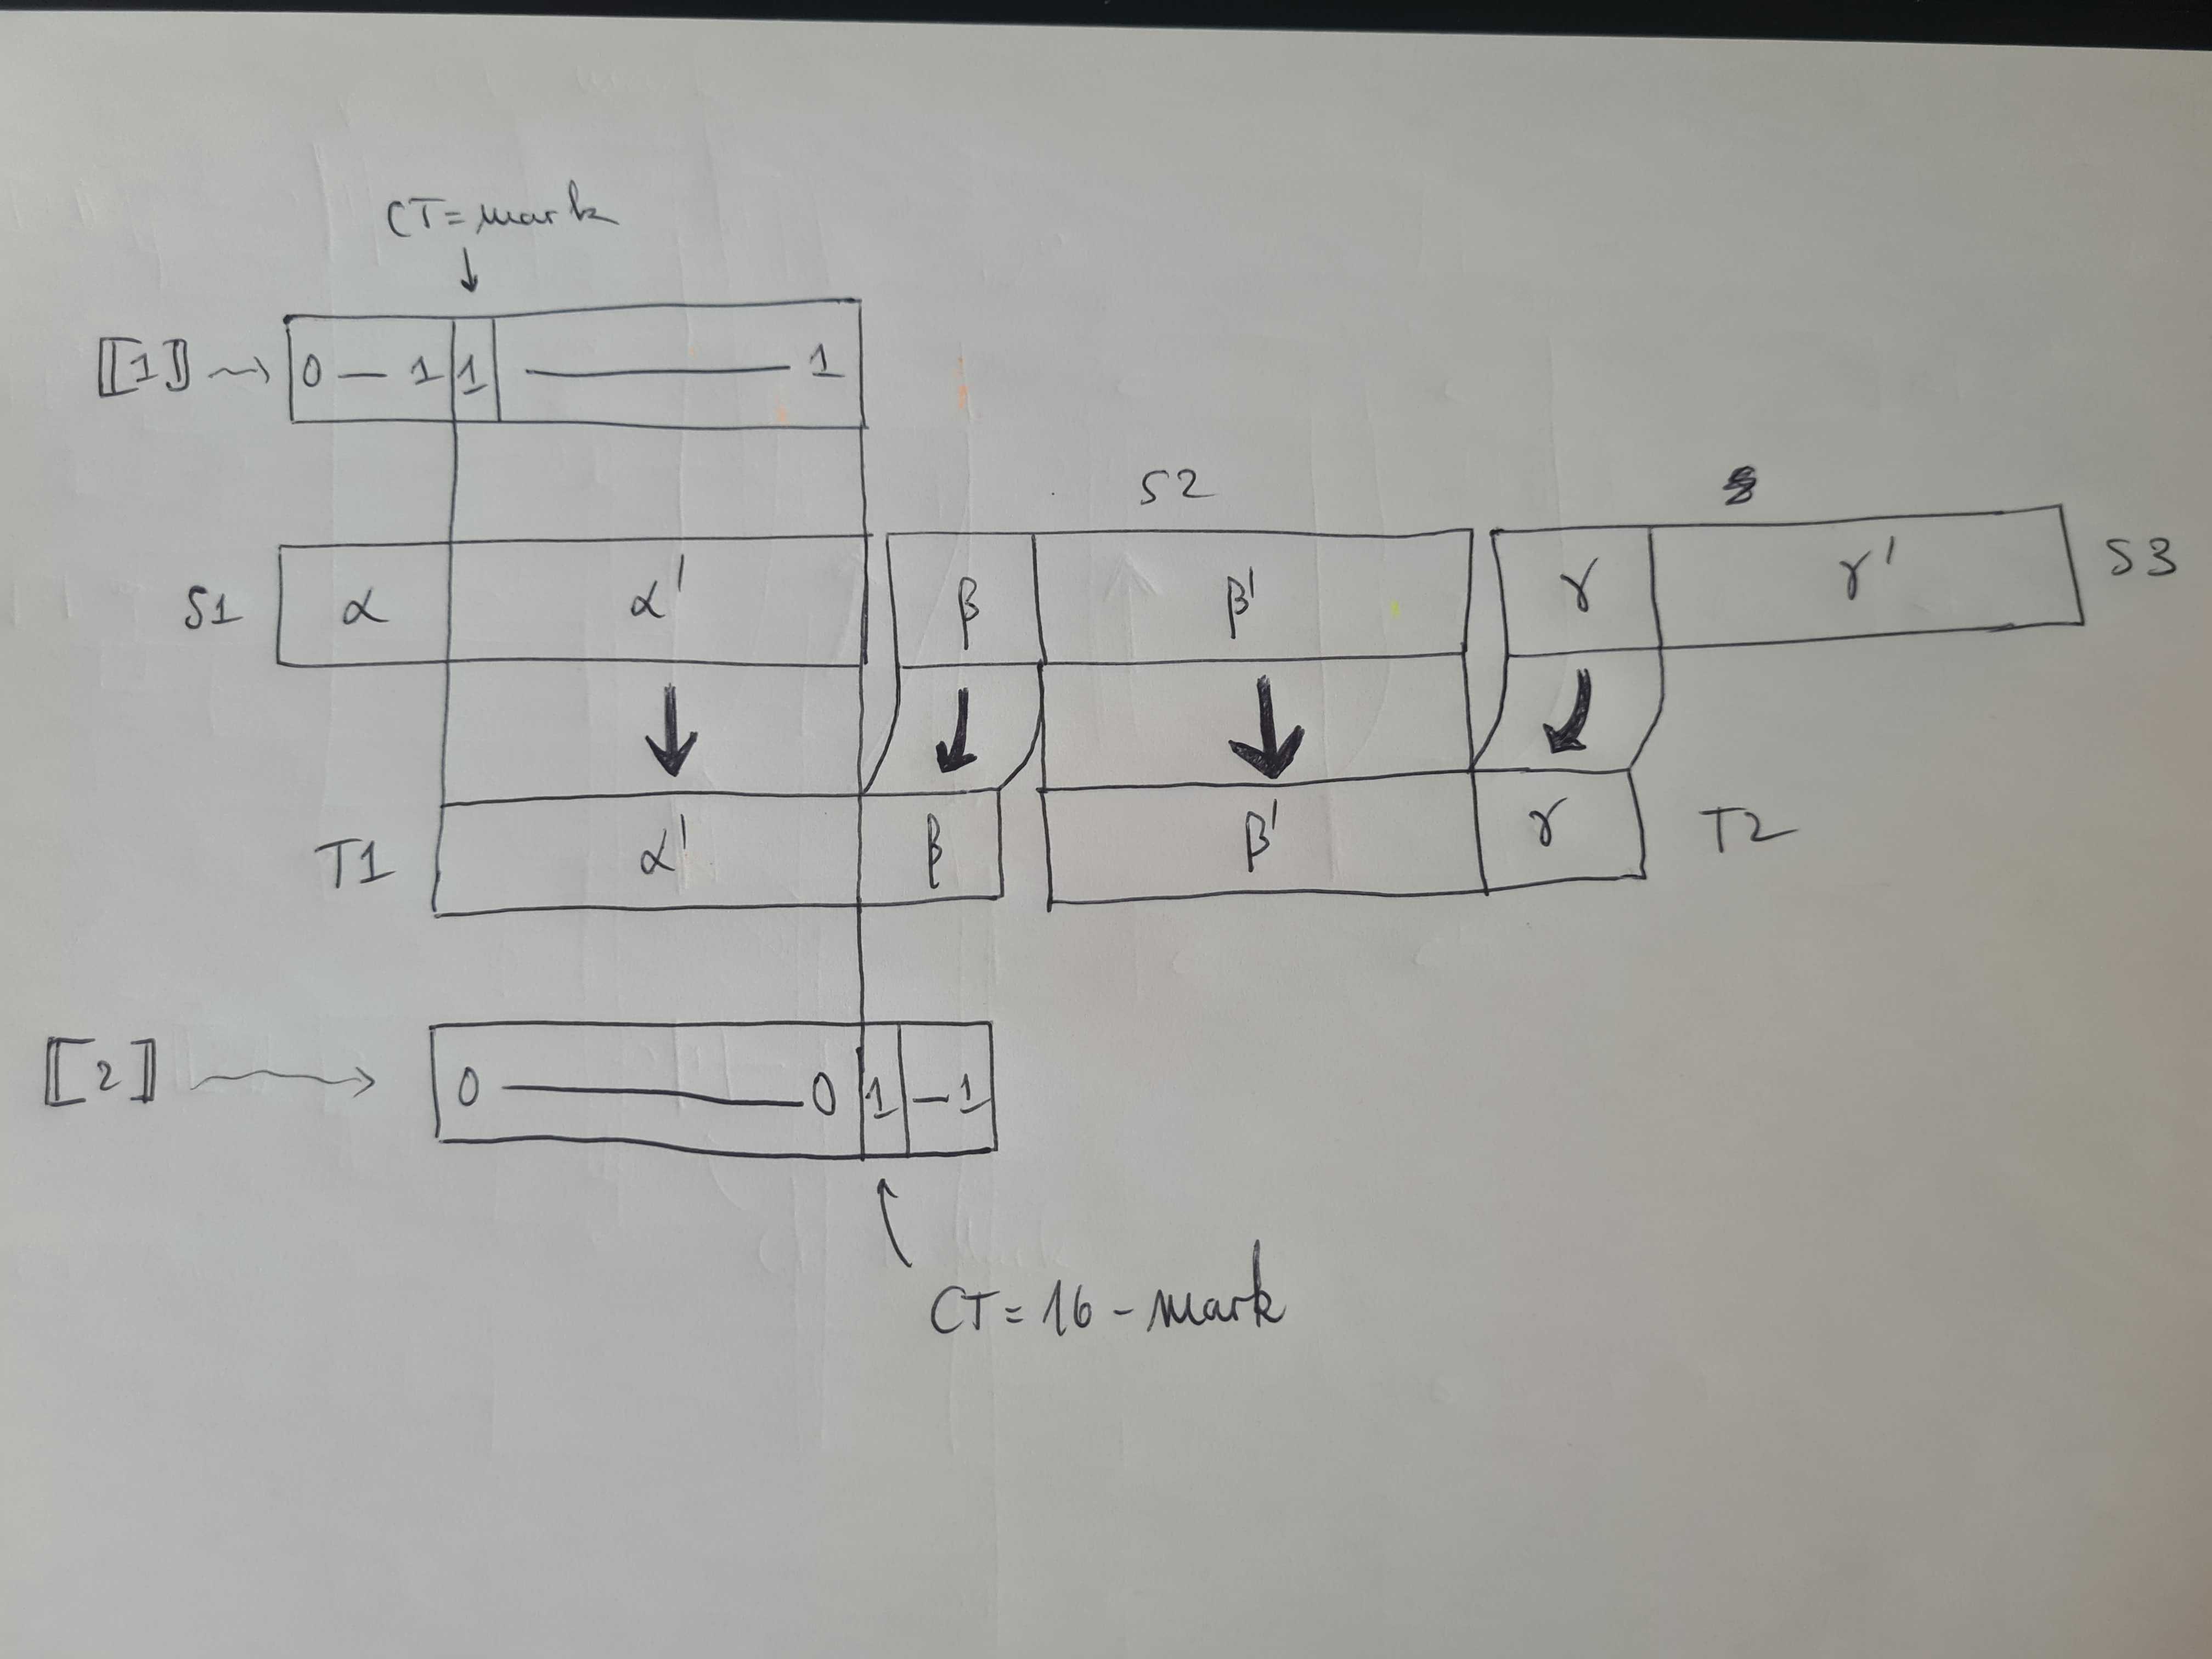 CT = mark
[[1]] 0 — 1 1 — 1
S2
S1 α α' β β' γ γ' S3
T1 α' β β' γ T2
[[2]] 0 — 0 1 — 1
CT = 16 - mark